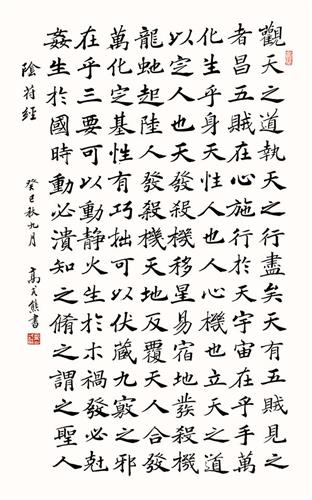 觀天之道執天之行盡矣天有五賊見之
者昌五賊在心施行於天宇宙在乎手萬
化生乎身天性人也人心機也立天之道
以定人也天發殺機移星易宿地發殺機
龍虵起陸人發殺機天地反覆天人合發
萬化定基性有巧拙可以伏藏九竅之邪
在乎三要可以動靜火生於木禍發必尅
姦生於國時動必潰知之脩之謂之聖人
陰符經 癸巳秋九月 高式熊書